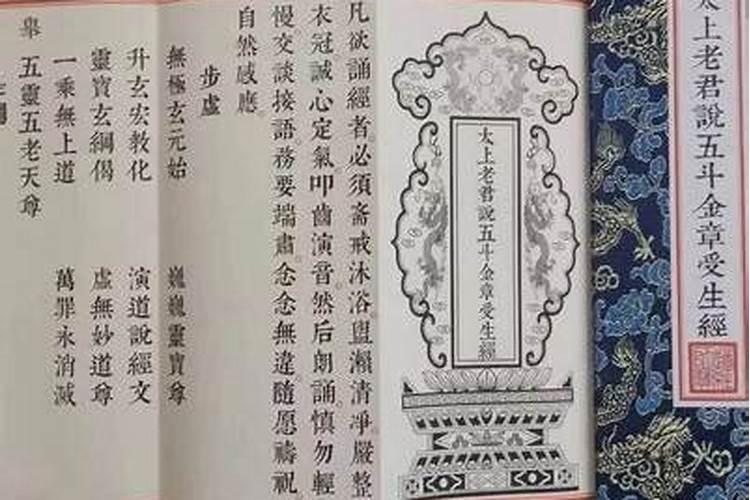 太上老君說五斗金章受生經
太上老君說五斗金章受生經
凡欲誦經者必須斋戒沐浴。盥瀨清淨。嚴整
衣冠誠心定氣。叩齒演音。然后朗誦。慎勿輕
慢。交談接語。務要端肅。念念無違。隨愿禱祝
自然感應。
步虛
無極玄元始 巍巍靈寶尊
升玄宏教化 演道說經文
靈寶玄綱偈 虛無妙道尊
一乘無上道 萬罪永消滅
舉 五靈五老天尊